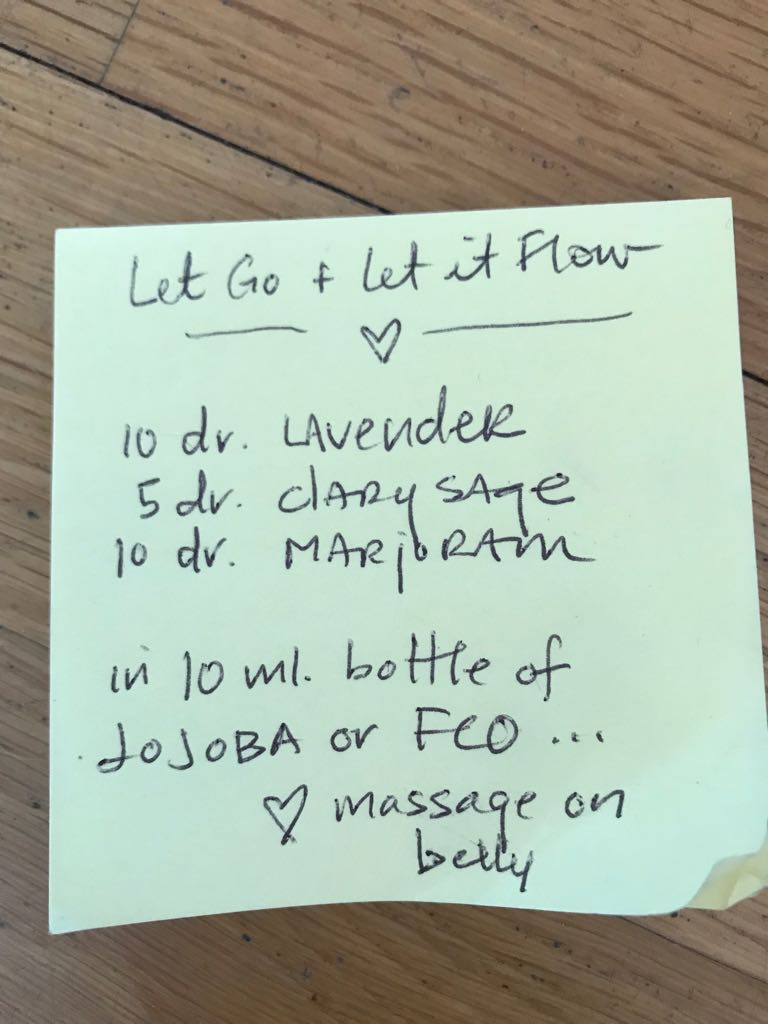 Let Go + Let it Flow
♡
10 dr. LAVendeR
5 dr. ClARy SAge
10 dr. MARjoRAM
in 10 ml. bottle of
JOJOBA or FCO ...
♡ massage on
belly